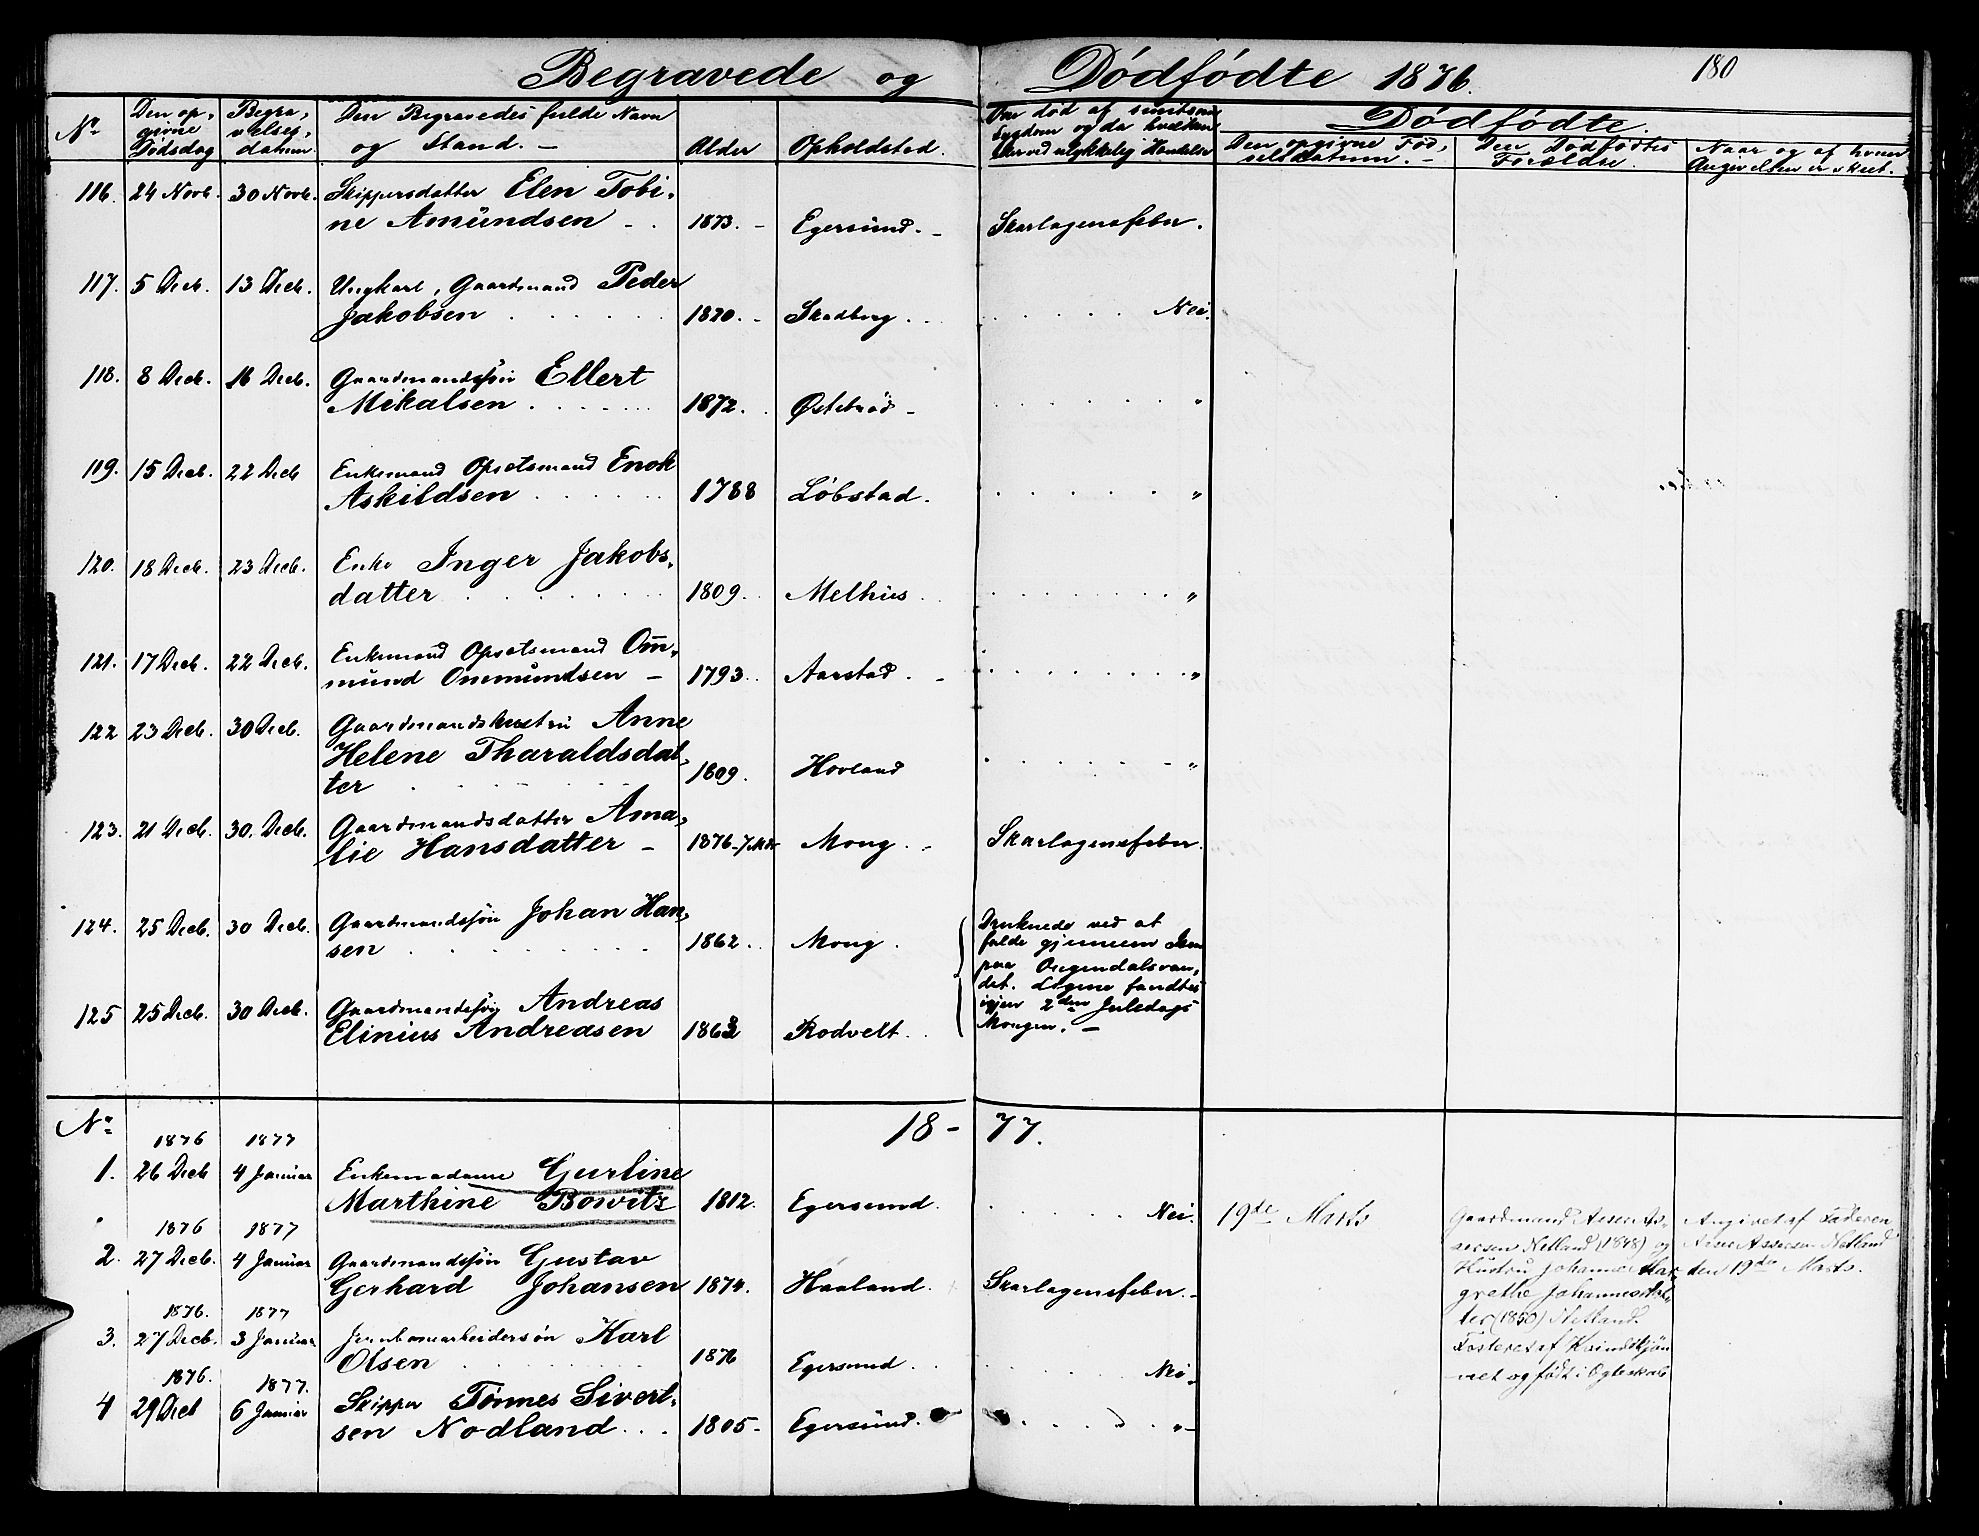 Begravede og Dödfödte 1876.
180
No
Den op-
givne
Dødsdag
Begra-
velses-
datum.
Den Begravedes fulde Navn
og Stand. —
Alder
Opholdsted.
Om død af smitsom
Sygdom og da hvilken
eller ved ulykkelig Hændelse
Dödfödte.
Den opgivne Föd-
selsdatum. —
Den Dödfödtes
Forældre.
Naar og af hvem
Angivelsen er skeet.
116. 24 Novb. 30 Novb. Skippersdatter Elen Tobi-
ne Amündsen - . 1873. - Egersund. - Skarlagensfeber.
117. 5 Decb. 13 Decb. Ungkarl, Gaardmand Peder
Jakobsen . . . . . . 1820. - Skadberg . . . . . . . . Nei.
118. 8 Decb. 16 Decb. Gaardmandssön Ellert
Mikalsen . . . . . . 1872. . Østebröd - . . . . . . . "
119. 15 Decb. 22 Decb Enkemand Opsetsmand Enok
Askildsen . . . . . . 1788 Löbstad. . . . . . . "
120. 18 Decb. 23 Decb. Enke Inger Jakobs-
datter . . . . . . . 1809. . Melhus . . . . . . . . . "
121. 17 Decb. 22 Decb. Enkemand Opsetsmand Om-
mund Ommundsen - 1793. . Aarstad . - . . . . . . . . "
122 23 Decb. 30 Decb. Gaardmandshustru Anne
Helene Tharaldsdat-
ter . . . . . . . 1809. Hovland . . . . . - "
123. 21 Decb. 30. Decb. Gaardmandsdatter Ama-
lie Hansdatter - 1876-7 Mdr Mong . - Skarlagensfeber.
124. 25 Decb. 30 Decb. Gaardmandssön Johan Han-
sen . . . . . . . . 1862. . Mong .
Druknede ved at
falde gjennem Isen
paa Oregendalsvan-
det. Ligene fandtes
igjen 2den Juledags
Morgen. -
125 25 Decb. 30 Decb. Gaardmandssön Andreas
Elinius Andreasen 1863 Rodvelt. .
No 18 - 77.
1876 1877
1. 26 Decb 4 Januar Enkemadame Gurline
Marthine Bowitz 1812. Egersund. . . . . . Nei.
19de Marts
Gaardmand Asser As-
sersen Netland (1848) og
Hustru Johanne Mar-
grethe Johannesdat-
ter (1850) Netland.
Fosteret af Kvindekjön-
net og født i Ægteskab
Angivet af Faderen
Asser Assersen Netland
den 19de Marts.
1876 1877
2. 27 Decb. 4 Januar Gaardmandssön Gustav
Gerhard Johansen 1874. Haaland. Skarlagensfeber. -
1876. 1877
3. 27 Decb. 3 Januar Jernbanearbeidersön Karl
Olsen . . . . . . . . 1876 Egersund. . . . . . Nei.
1876. 1877.
4 29 Decb 6 Januar Skipper Tønnes Sivert-
sen Nodland . . . 1805 - Egersund. . . . . "-